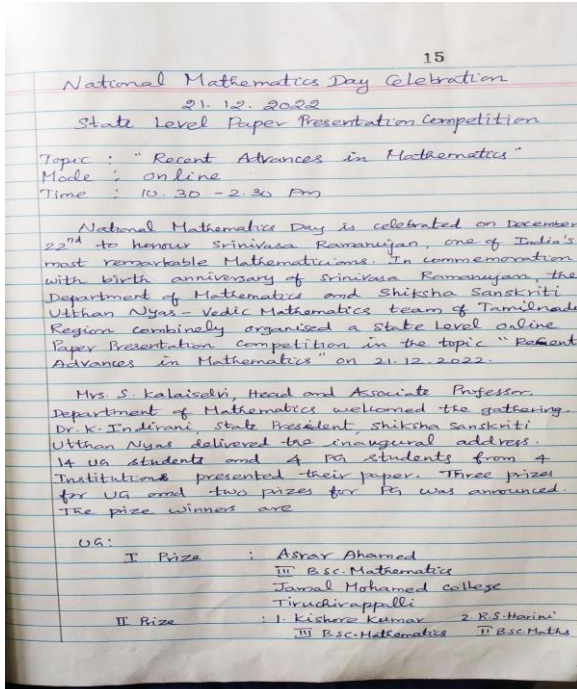 15
National Mathematics Day Celebration
21. 12. 2022
State Level Paper Presentation Competition
Topic : "Recent Advances in Mathematics"
Mode : online
Time : 10.30 - 2.30 pm
National Mathematics Day is celebrated on December
22nd to honour Srinivasa Ramanujan, one of India's
most remarkable Mathematicians. In commemoration
with birth anniversary of Srinivasa Ramanujan, the
Department of Mathematics and Shiksha Sanskriti
Utthan Nyas - Vedic Mathematics team of Tamilnadu
Region combinely organised a State Level online
Paper Presentation competition in the topic "Recent
Advances in Mathematics" on 21.12.2022.
Mrs. S. Kalaiselvi, Head and Associate Professor,
Department of Mathematics welcomed the gathering.
Dr. K. Indirani, State President, Shiksha Sanskriti
Utthan Nyas delivered the inaugural address.
14 UG students and 4 PG students from 4
Institutions presented their paper. Three prizes
for UG and two prizes for PG was announced.
The prize winners are
UG:
I Prize : Asrar Ahamed
III B.Sc. Mathematics
Jamal Mohamed college
Tiruchirappalli
II Prize : 1. Kishore Kumar 2. R.S. Harini
III BSC. Mathematics II B.Sc Maths